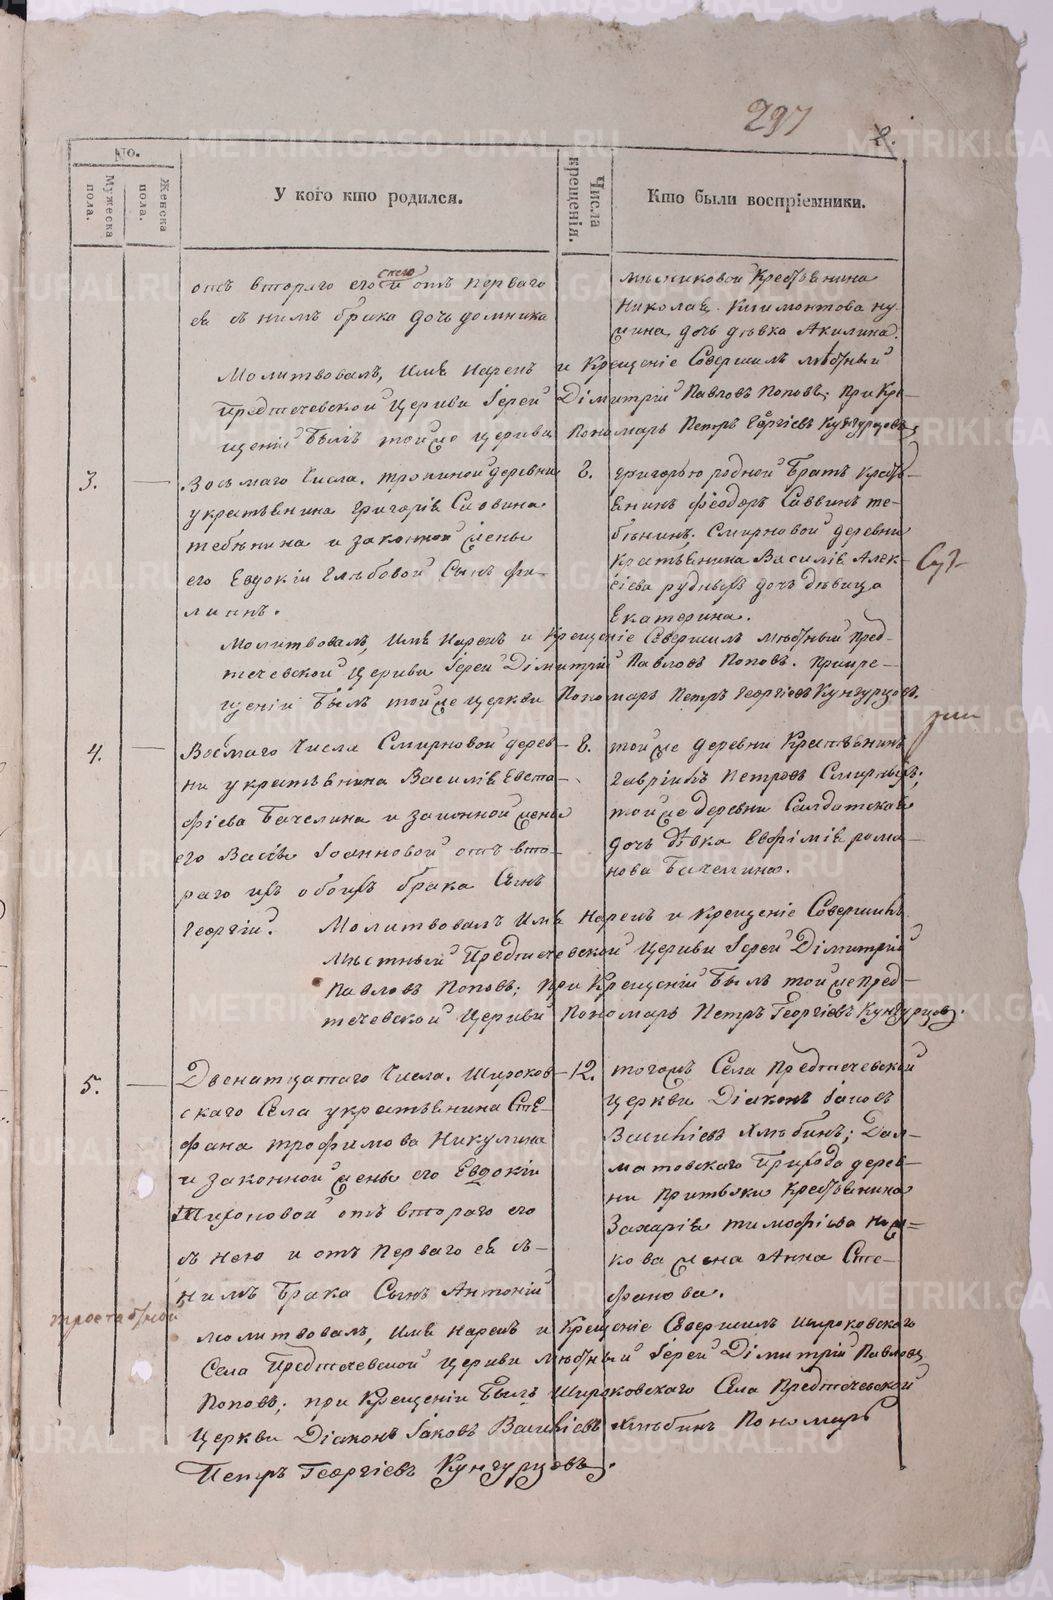 297
No.
Мужеска пола.
Женска пола.
У кого кто родился.
Числа крещенія.
Кто были воспріемники.
отъ втораго его и отъ перваго
ея съ нимъ брака дочь домника
Крестьянина
Николая
дочь дѣвка Акилина.
Молитвовалъ, Имя Нарекъ и Крещеніе Совершилъ мѣстный
Предтечевской Церкви Іерей Дімитрій Павловъ Поповъ; при Кре-
щеніи былъ тойже церкви Пономарь Петръ Георгіевъ Кунгурцовъ.
3. Восьмаго Числа. тропиной деревни
у крестьянина григорія Саввина
тебенина и законной жены
его Евдокіи Глѣбовой Сынъ фи-
липпъ.
8.
григорью родной Братъ Кресть-
янинъ феодоръ Саввинъ те-
бѣнинъ. Смирновой деревни
Крестьянина Василія Алек-
сіева дочь дѣвица
Екатерина.
Молитвовалъ, Имя Нарекъ и Крещеніе Совершилъ мѣстный Пред-
течевской Церкви Іерей Дімитрій Павловъ Поповъ. При кре-
щеніи Былъ тойже церкви Пономарь Петръ Георгіевъ Кунгурцовъ.
4. Восмаго Числа Смирновой дерев-
ни у крестьянина Василія Евста-
фіева Бачелина и законной жены
его Вассы Іоанновой отъ вто-
раго ихъ обоихъ брака Сынъ
Георгій.
8.
тойже деревни Крестьянинъ
Гавріилъ Петровъ Смирныхъ;
тойже деревни Салдатская
дочь дѣвка Евфимія рома-
нова Бачелина.
Молитвовалъ Имя Нарекъ и Крещеніе Совершилъ
Мѣстный Предтечевской Церкви Іерей Дімитрій
Павловъ Поповъ; при Крещеніи Былъ тойже Пред-
течевской Церкви Пономарь Петръ Георгіевъ Кунгурцовъ.
5. Двенатцатаго Числа. Широков-
скаго Села у крестьянина Сте-
фана трофимова Никулина
и законной жены его Евдокіи
Тихоновой отъ втораго его
съ нею и отъ перваго ея съ
нимъ Брака Сынъ Антоній
12.
тогожъ Села Предтечевской
церкви Діаконъ Іаковъ
Василіевъ Хлѣбинъ; Дал-
матовскаго Прихода дерев-
ни Притыки Крестьянина
Захарія тимофѣева
жена Анна Сте-
фанова.
Молитвовалъ, Имя Нарекъ и Крещеніе Совершилъ широковскаго
Села Предтечевской церкви мѣстный Іерей Дімитрій Павловъ
Поповъ; при Крещеніи Былъ Широковскаго Села Предтечевской
Церкви Діаконъ Іаковъ Василіевъ Хлѣбинъ Пономарь
Петръ Георгіевъ Кунгурцовъ.
METRIKI.GASO-URAL.RU